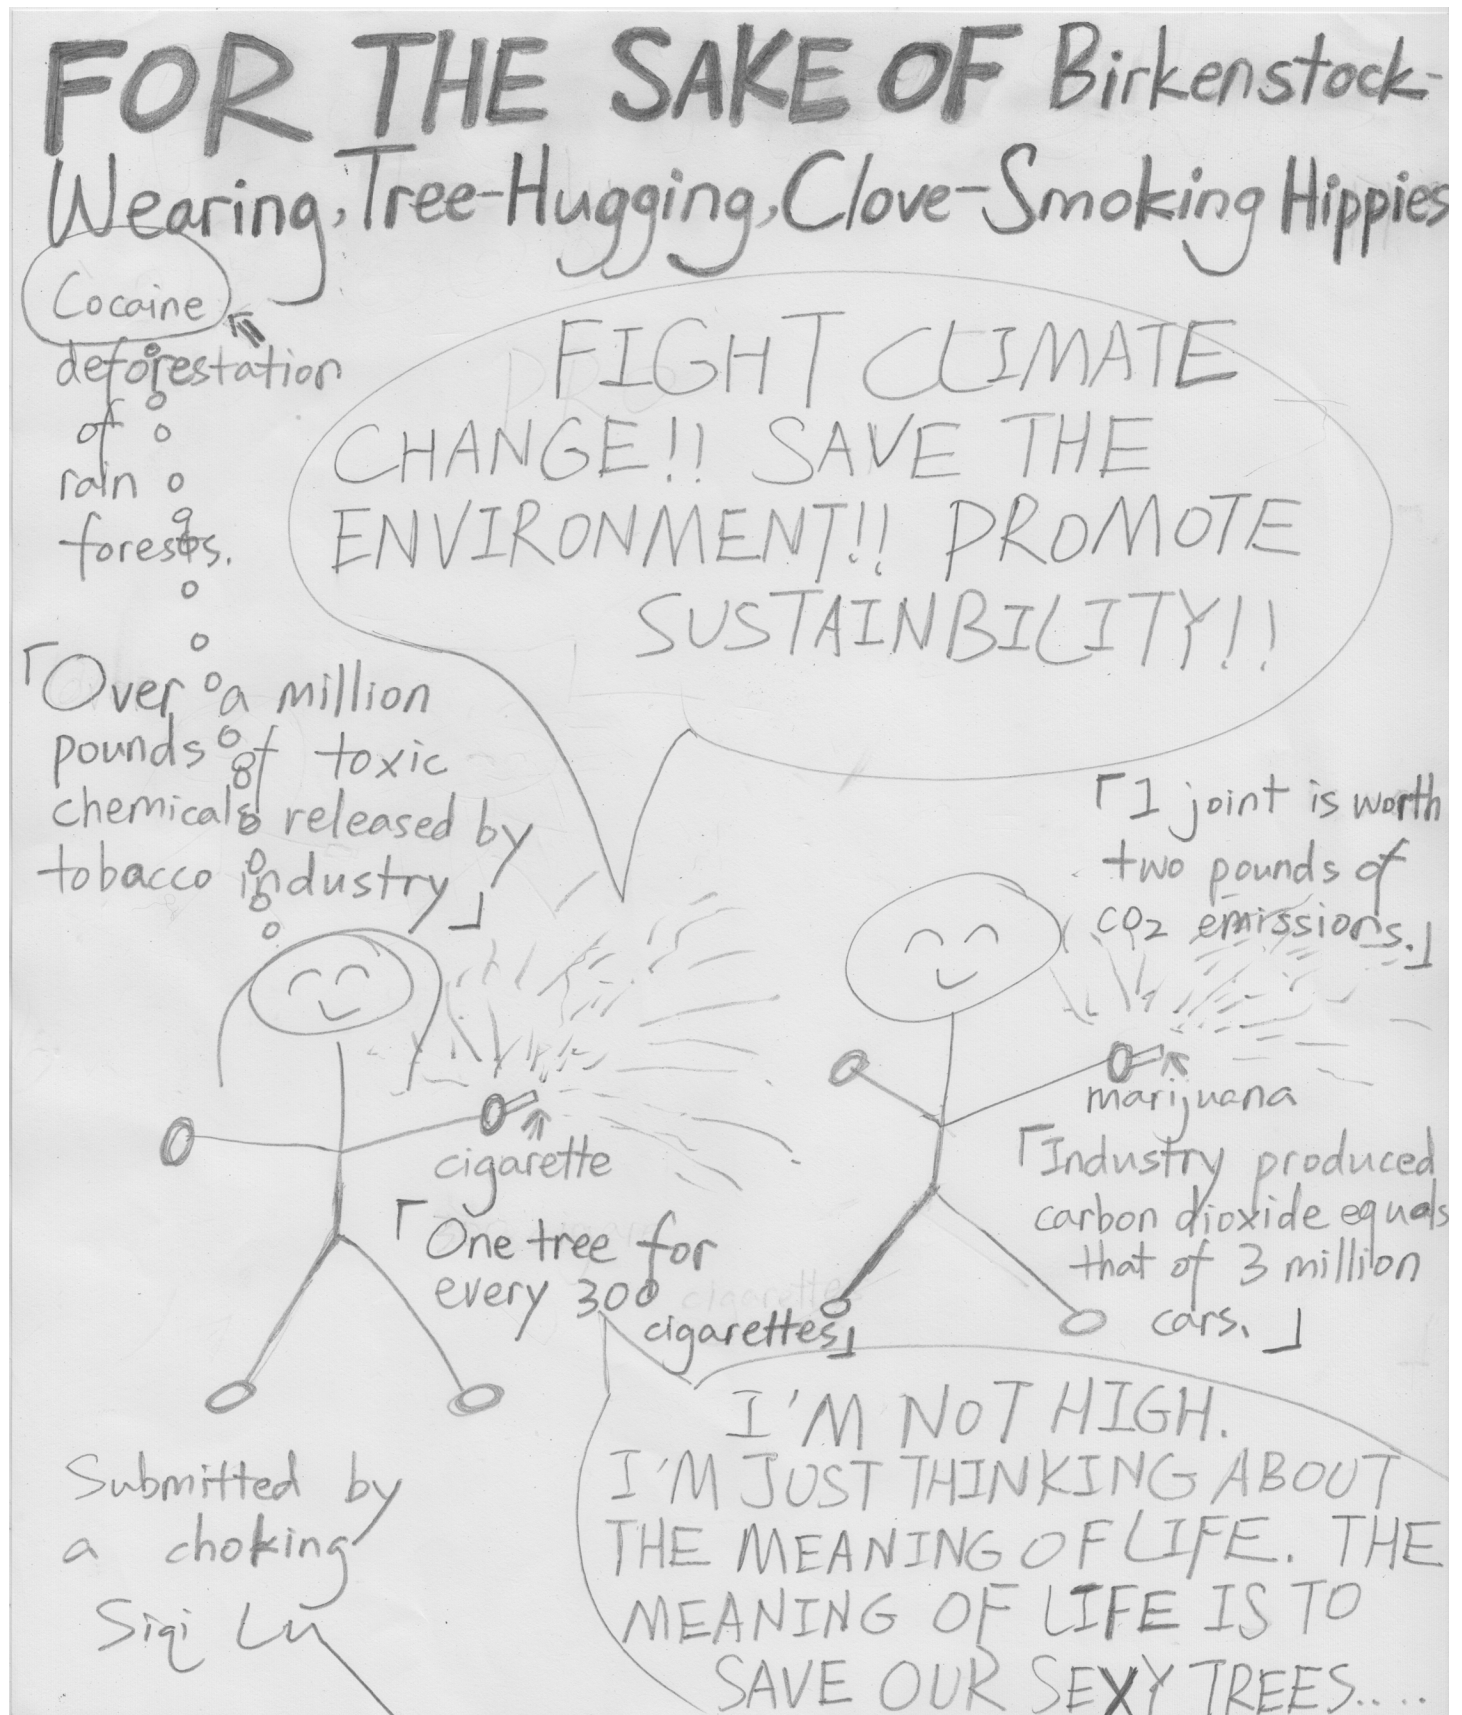 FOR THE SAKE OF Birkenstock-
Wearing, Tree-Hugging, Clove-Smoking Hippies
Cocaine
deforestation
of
rain
forests.
FIGHT CLIMATE
CHANGE!! SAVE THE
ENVIRONMENT!! PROMOTE
SUSTAINBILITY!!
「Over a million
pounds of toxic
chemicals released by
tobacco industry」
「1 joint is worth
two pounds of
CO2 emissions.」
marijuana
「Industry produced
carbon dioxide equals
that of 3 million
cars.」
cigarette
「One tree for
every 300
cigarettes」
I'M NOT HIGH.
I'M JUST THINKING ABOUT
THE MEANING OF LIFE. THE
MEANING OF LIFE IS TO
SAVE OUR SEXY TREES....
Submitted by
a choking
Siqi Lu